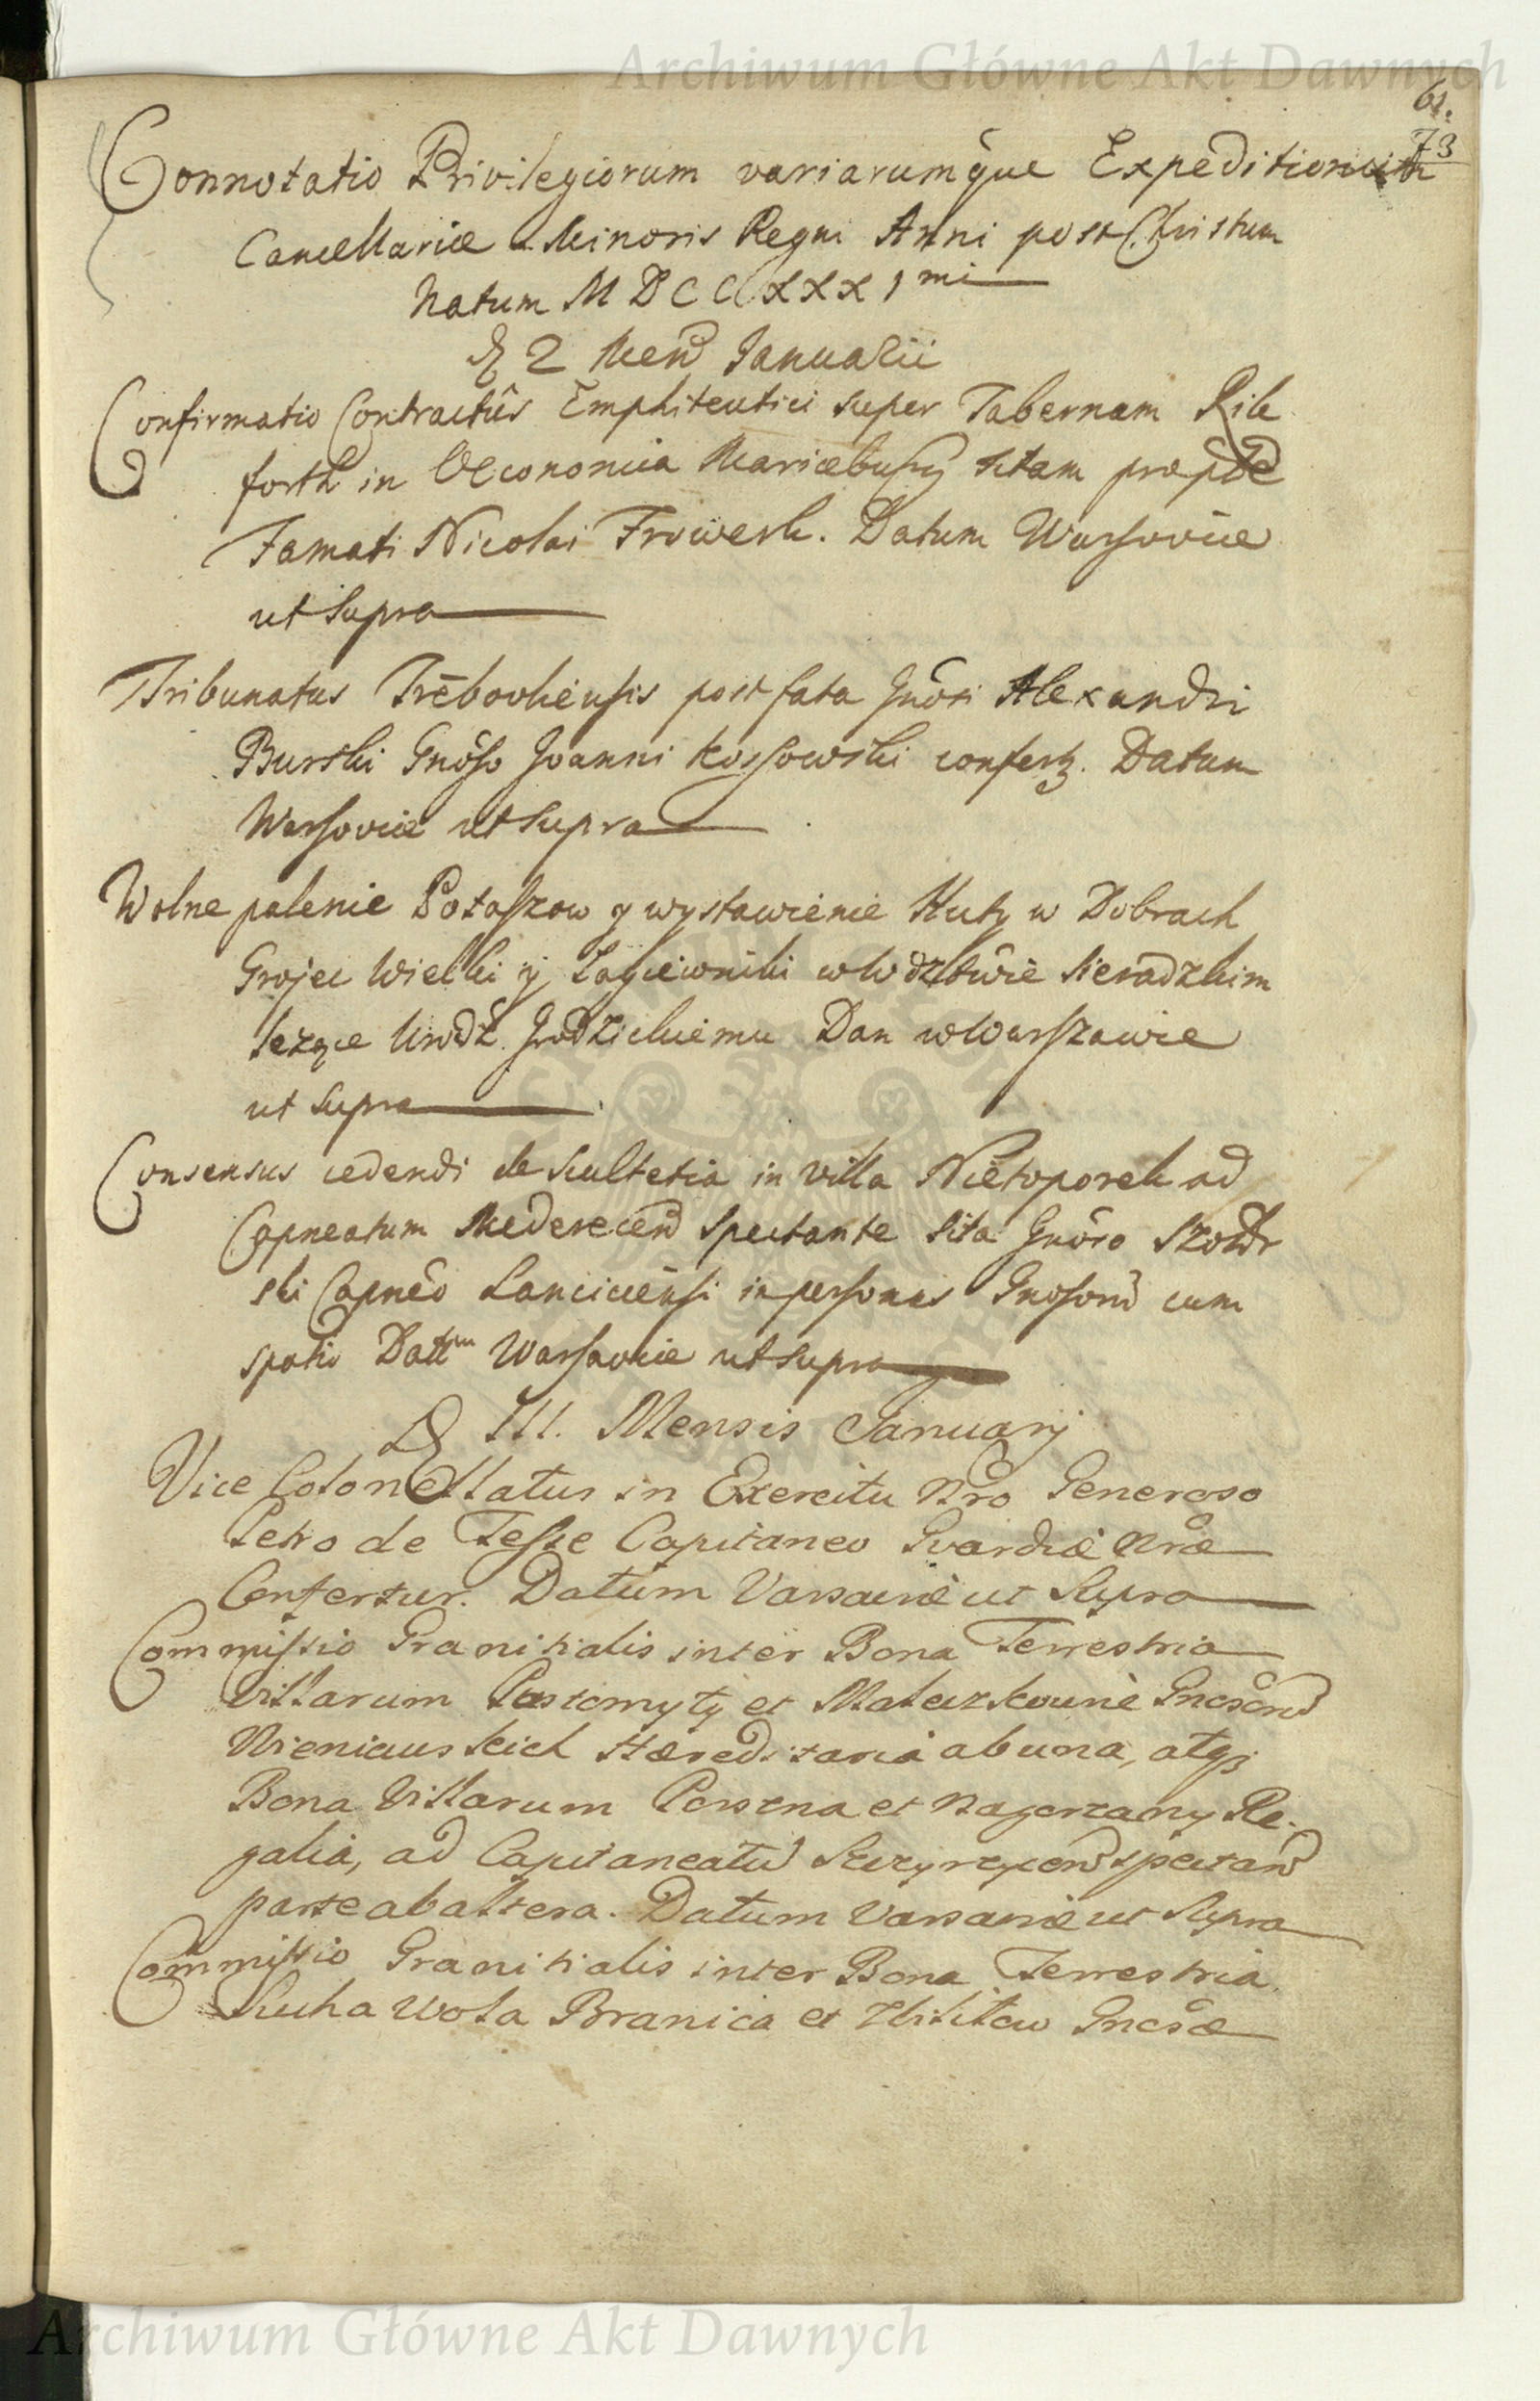 Archiwum Główne Akt Dawnych
61.
73
Connotatio Privilegiorum variarumque Expeditionum
Cancellariæ Minoris Regni Anni post Christum
Natum MDCCXXXI mi
D 2 Mens Ianuarii
Confirmatio Contractûs Emphiteutici super Tabernam Rik
forth in Oeconomia Mariæburg sitam pro pte
Famati Nicolai Frowerk. Datum Warsoviæ
ut supra
Tribunatus Trebovliensis post fata Gnosi Alexandri
Burski Gnoso Joanni Kossowski confertz. Datum
Warsoviæ ut supra
Wolne palenie Potaszow y wystawienie Huty w Dobrach
Grojec Wielki y Łagiewniki w Wdztwie Sieradzkim
lezące Urodz. Grodzickiemu Dan w Warszawie
ut supra
Consensus cedendi de Scultetia in villa Nietoperek ad
Capneatum Mederecen spectante sita Gnoso Szołdr
ski Capneo Lanciciensi in personas Gnosorum cum
spatio Dattm Warsaviæ ut supra
D III. Mensis Januarj
Vice Colonellatus in Exercitu Nro Generoso
Petro de Tesse Capitaneo Gvardiæ Nræ
Confertur. Datum Varsaviæ ut Supra
Commissio Granitialis inter Bona Terrestria
Villarum Pustomyty et
Wieniawskich Hæreditaria ab una, atqz
Bona Villarum Porszna et Nagorzany Re-
galia, ad Capitaneatu spectan
parte ab altera. Datum Varsaviæ ut Supra
Commissio Granitialis inter Bona Terrestria
Sucha Wola Branica et Gnosæ
Archiwum Główne Akt Dawnych